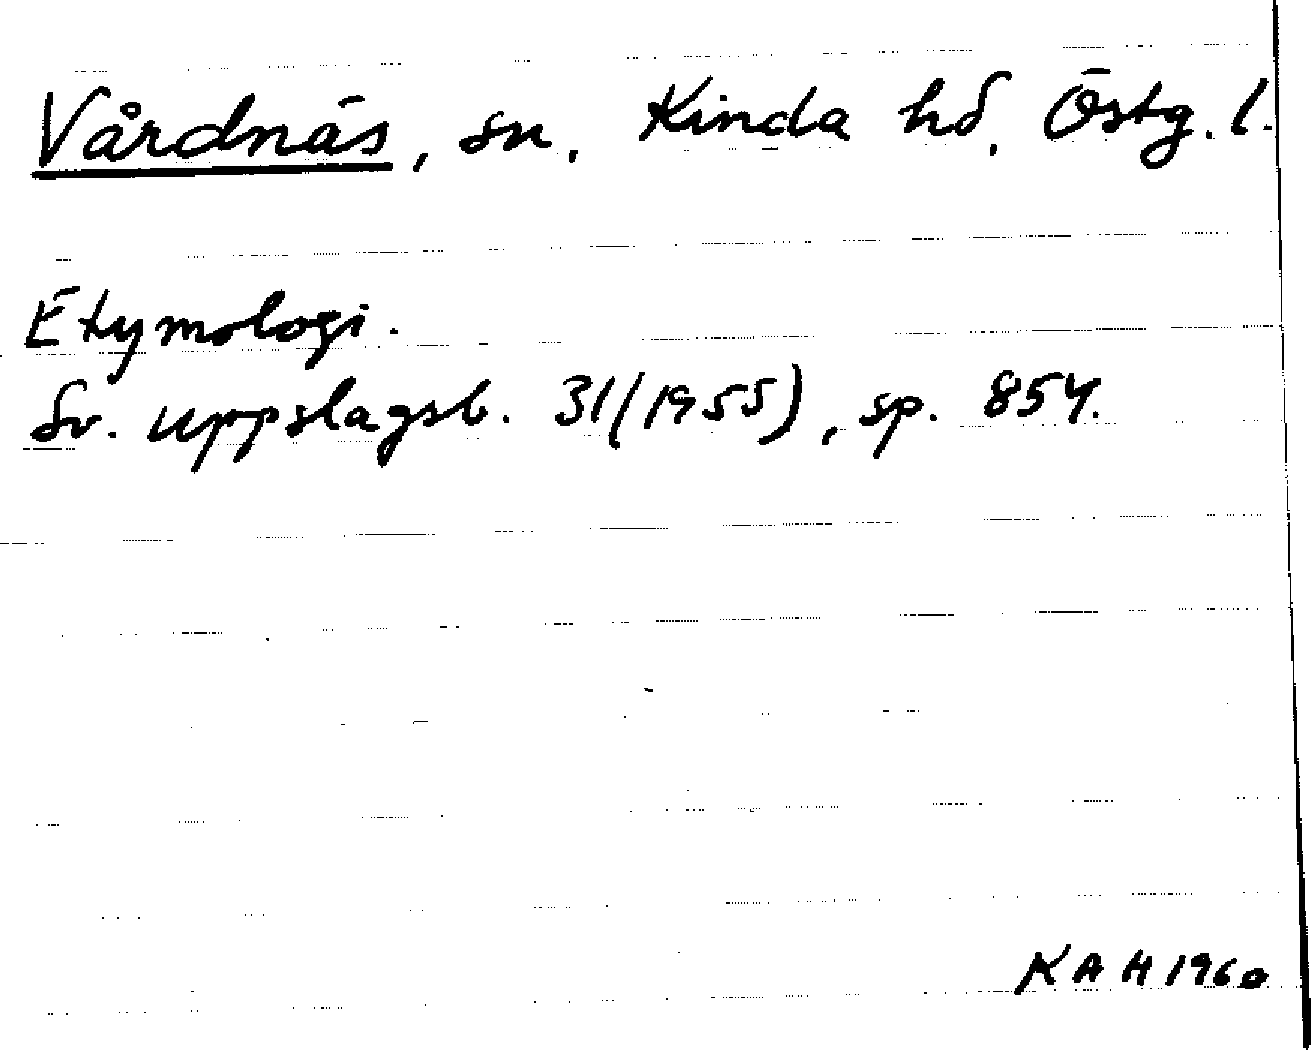 Vårdnäs, sn, Kinda hd, Östg. l.
Etymologi.
Sv. uppslagsb. 31(1955), sp. 854.
KAH 1960